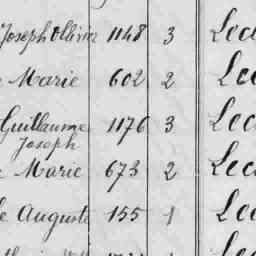 Joseph Ollivier 1148 3 Lec
Marie 602 2 Lec
Guillaume 1176 3 Lec
Joseph
Marie 673 2 Lec
Auguste 155 1 Lec